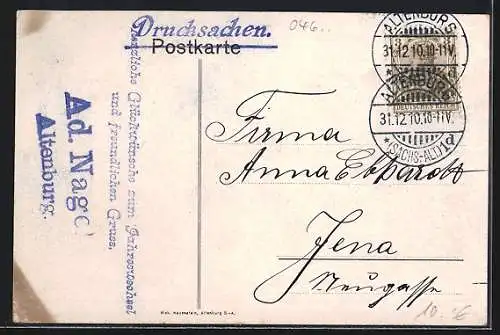 Drucksachen.
Postkarte
046..
Herzliche Glückwünsche zum Jahreswechsel
und freundlichen Gruss,
Ad. Nagel
Altenburg.
ALTENBURG
31.12.10.10-11V.
ALTENBURG
31.12.10.10-11V.
*(SACHS.-ALT.)1a
DEUTSCHES REICH
Firma
Anna Ebhardt
Jena
Neugasse
Altenburg S.-A.
10.-€